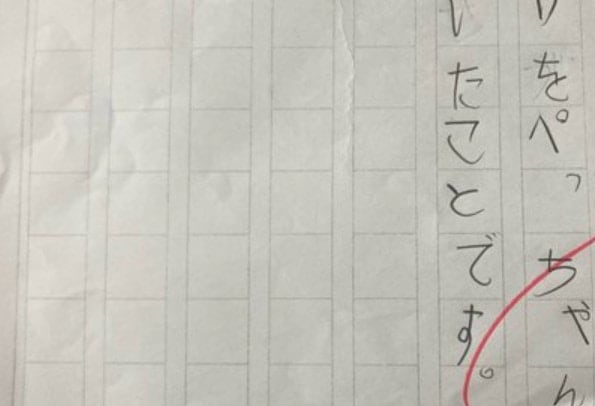 をぺっちゃん
たことです。